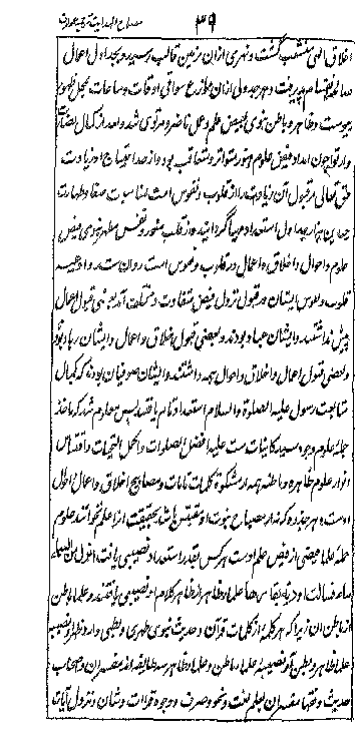 ۳۹ مصباح الهدایت ترجمه عوارف
اخلاق الهی منشعب گشت و نهری ازان زمین قالب رسید و بجداول اعمال
پیوست و ظاهر و باطن نبوی بفیض علم و عمل ناضر و مرتوی شد و بعد از کمال
و ارتوا چون امداد فیض علوم هنوز متواتر و متعاقب بود و از حد احتیاج او زیادت
حق تعالی در قبول آن زیادت از قلوب و نفوس امت بمناسبت صفا و طهارت
چندین هزار جداول استعداد مهیا گردانید و از قلب منور و نفس مطهر نبوی فیض
علوم و احوال و اخلاق و اعمال در قلوب و نفوس امت روان شد
قلوب و نفوس ایشان در قبول نزول فیض متفاوت قبول اعمال
بیش نداشتند و ایشان عباد بودند و بعضی قبول اخلاق و اعمال و ایشان زهاد بودند
و بعضی قبول اعمال و اخلاق و احوال همه داشتند و ایشان صوفیان بودند که بکمال
متابعت رسول علیه الصلوة و السلام استعداد تام یافتند پس معلوم شد که ماخذ
جمله علوم وجود سید کاینات ست علیه افضل الصلوات و اکمل التحیات و اقتباس
انوار علوم ظاهره و باطنه همه از مشکوة کلمات تامات و مصابیح اخلاق و اعمال و احوال
اوست و هر جذوه که نه از مصباح نبوت او مقتبس باشد بحقیقت از علم نخوانند علوم
جمله علما فیضی از فیض علم اوست هر کس بقدر استعداد نصیبی یافت انزل من السماء
ماء فسالت اودیة بقدرها علماء ظاهر از ظاهر کلام او نصیبی یافتند و علماء باطن
از باطن آن زیرا که هر کلمه از کلمات قرآن و حدیث نبوی ظهری و بطنی دارد
علماء ظاهر و بطن آن نصیبه علماء باطن و علماء ظاهر سه طایفه اند مفسران و اصحاب
حدیث و فقها مفسران بعلم لغت و نحو و صرف و وجوه قراءات و شان و نزول آیات